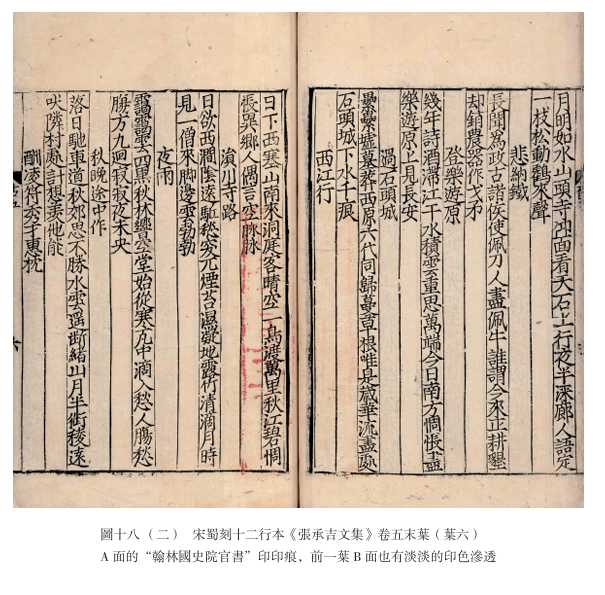 月明如水山頭寺仰面看天石上行夜半深廊人語定
一枝松動鶴來聲
悲納鐵
長聞為政古諸侯使佩刀人盡佩牛誰謂今來正耕墾
却銷農器作戈矛
登樂遊原
幾年詩酒滯江干水積雲重思萬端今日南方惆悵盡
樂遊原上見長安
過石頭城
纍纍墟墓葬西原六代同歸蔓草根唯是歲華流盡處
石頭城下水千痕
西江行
日下西塞山南來洞庭客晴空一鳥渡萬里秋江碧惆
悵異鄉人偶言空脉脉
濱川寺路
日欲西澗陰遠駈愁突兀煙苔濕凝地露竹清滴月時
見一僧來脚邊雲勃勃
夜雨
靄靄雲四黒秋林響空堂始從寒瓦中滴入愁人膓愁
膓方九迴寂寂夜未央
秋晚途中作
落日馳車道秋郊思不勝水雲遥斷緒山月半銜稜遠
吠隣村處計想羨他能
酬凌符秀才惠枕
六
圖十八（二） 宋蜀刻十二行本《張承吉文集》卷五末葉（葉六）
A 面的“翰林國史院官書”印印痕，前一葉 B 面也有淡淡的印色滲透